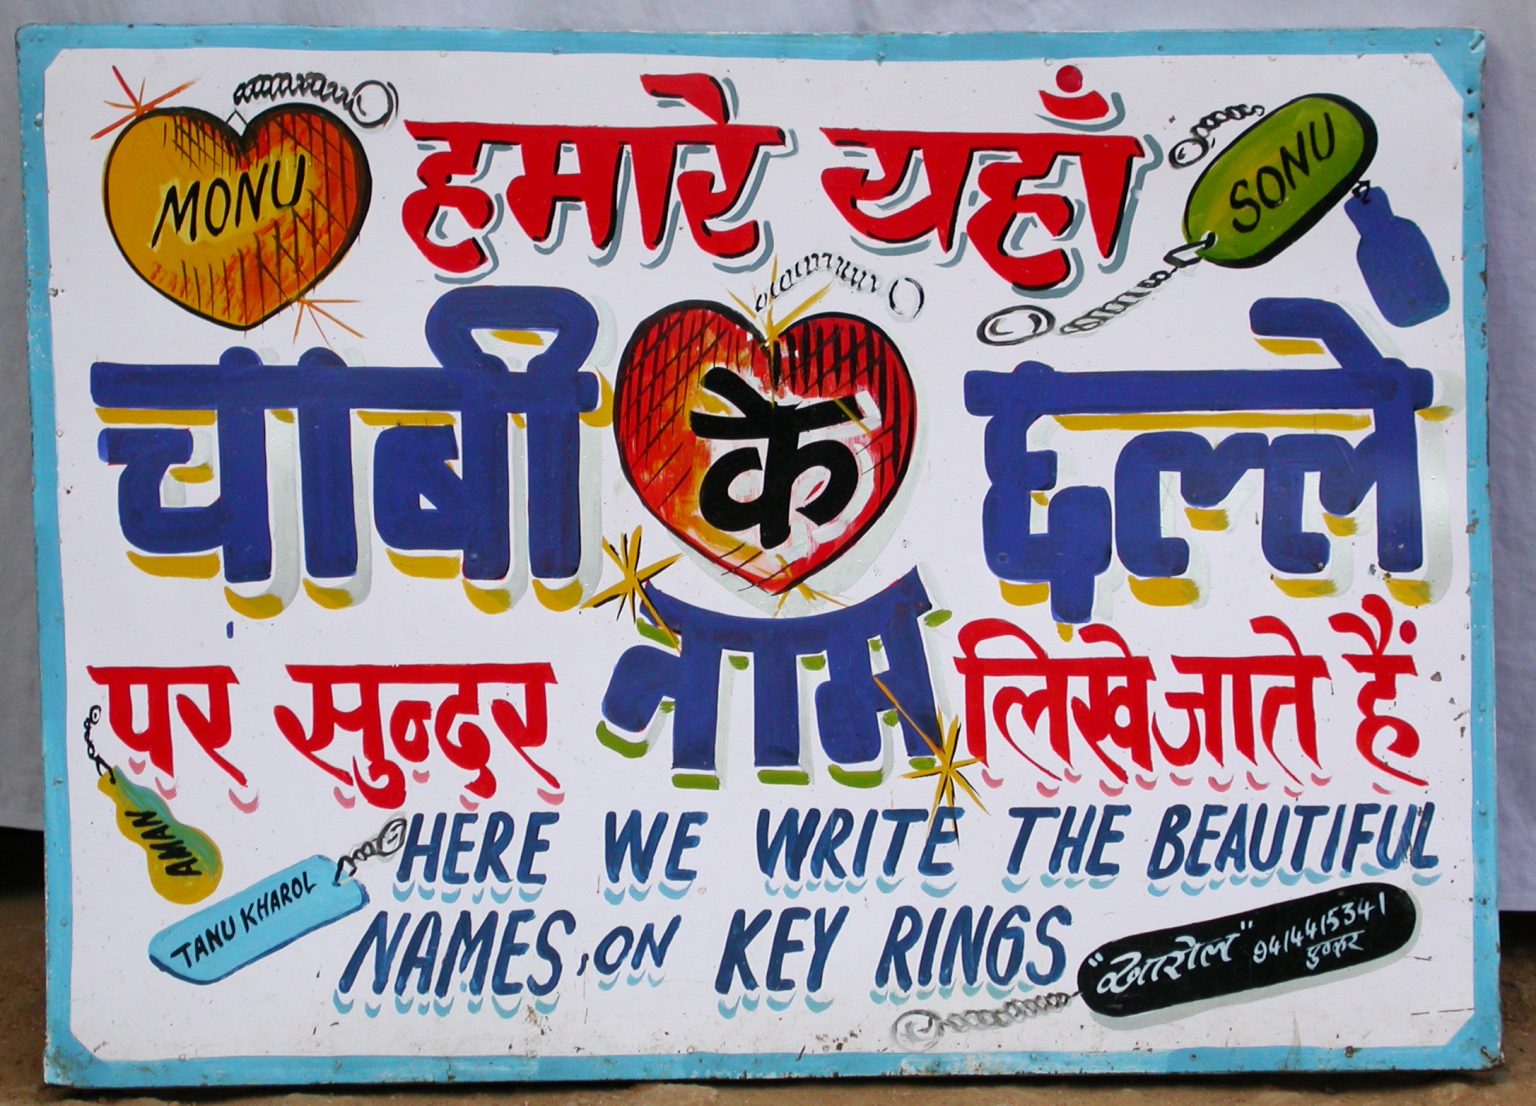 MONU
हमारे यहाँ
SONU
चाबी के छल्ले
पर सुन्दर नाम लिखे जाते हैं
AMAN
TANU KHAROL
HERE WE WRITE THE BEAUTIFUL
NAMES, ON KEY RINGS
"खारोल" 9414415341
पुष्कर